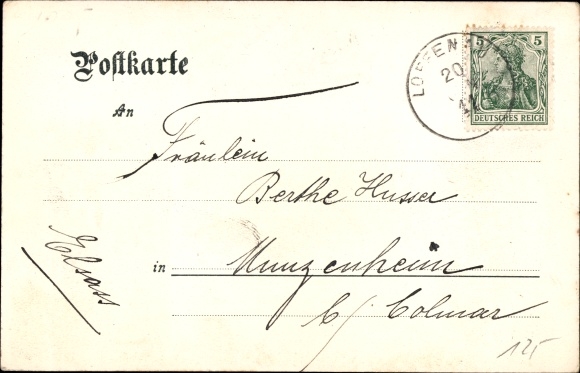 Postkarte
An
Fräulein
Berthe Husser
in Munzenheim
b/ Colmar
Elsass
5 5
DEUTSCHES REICH
20
125